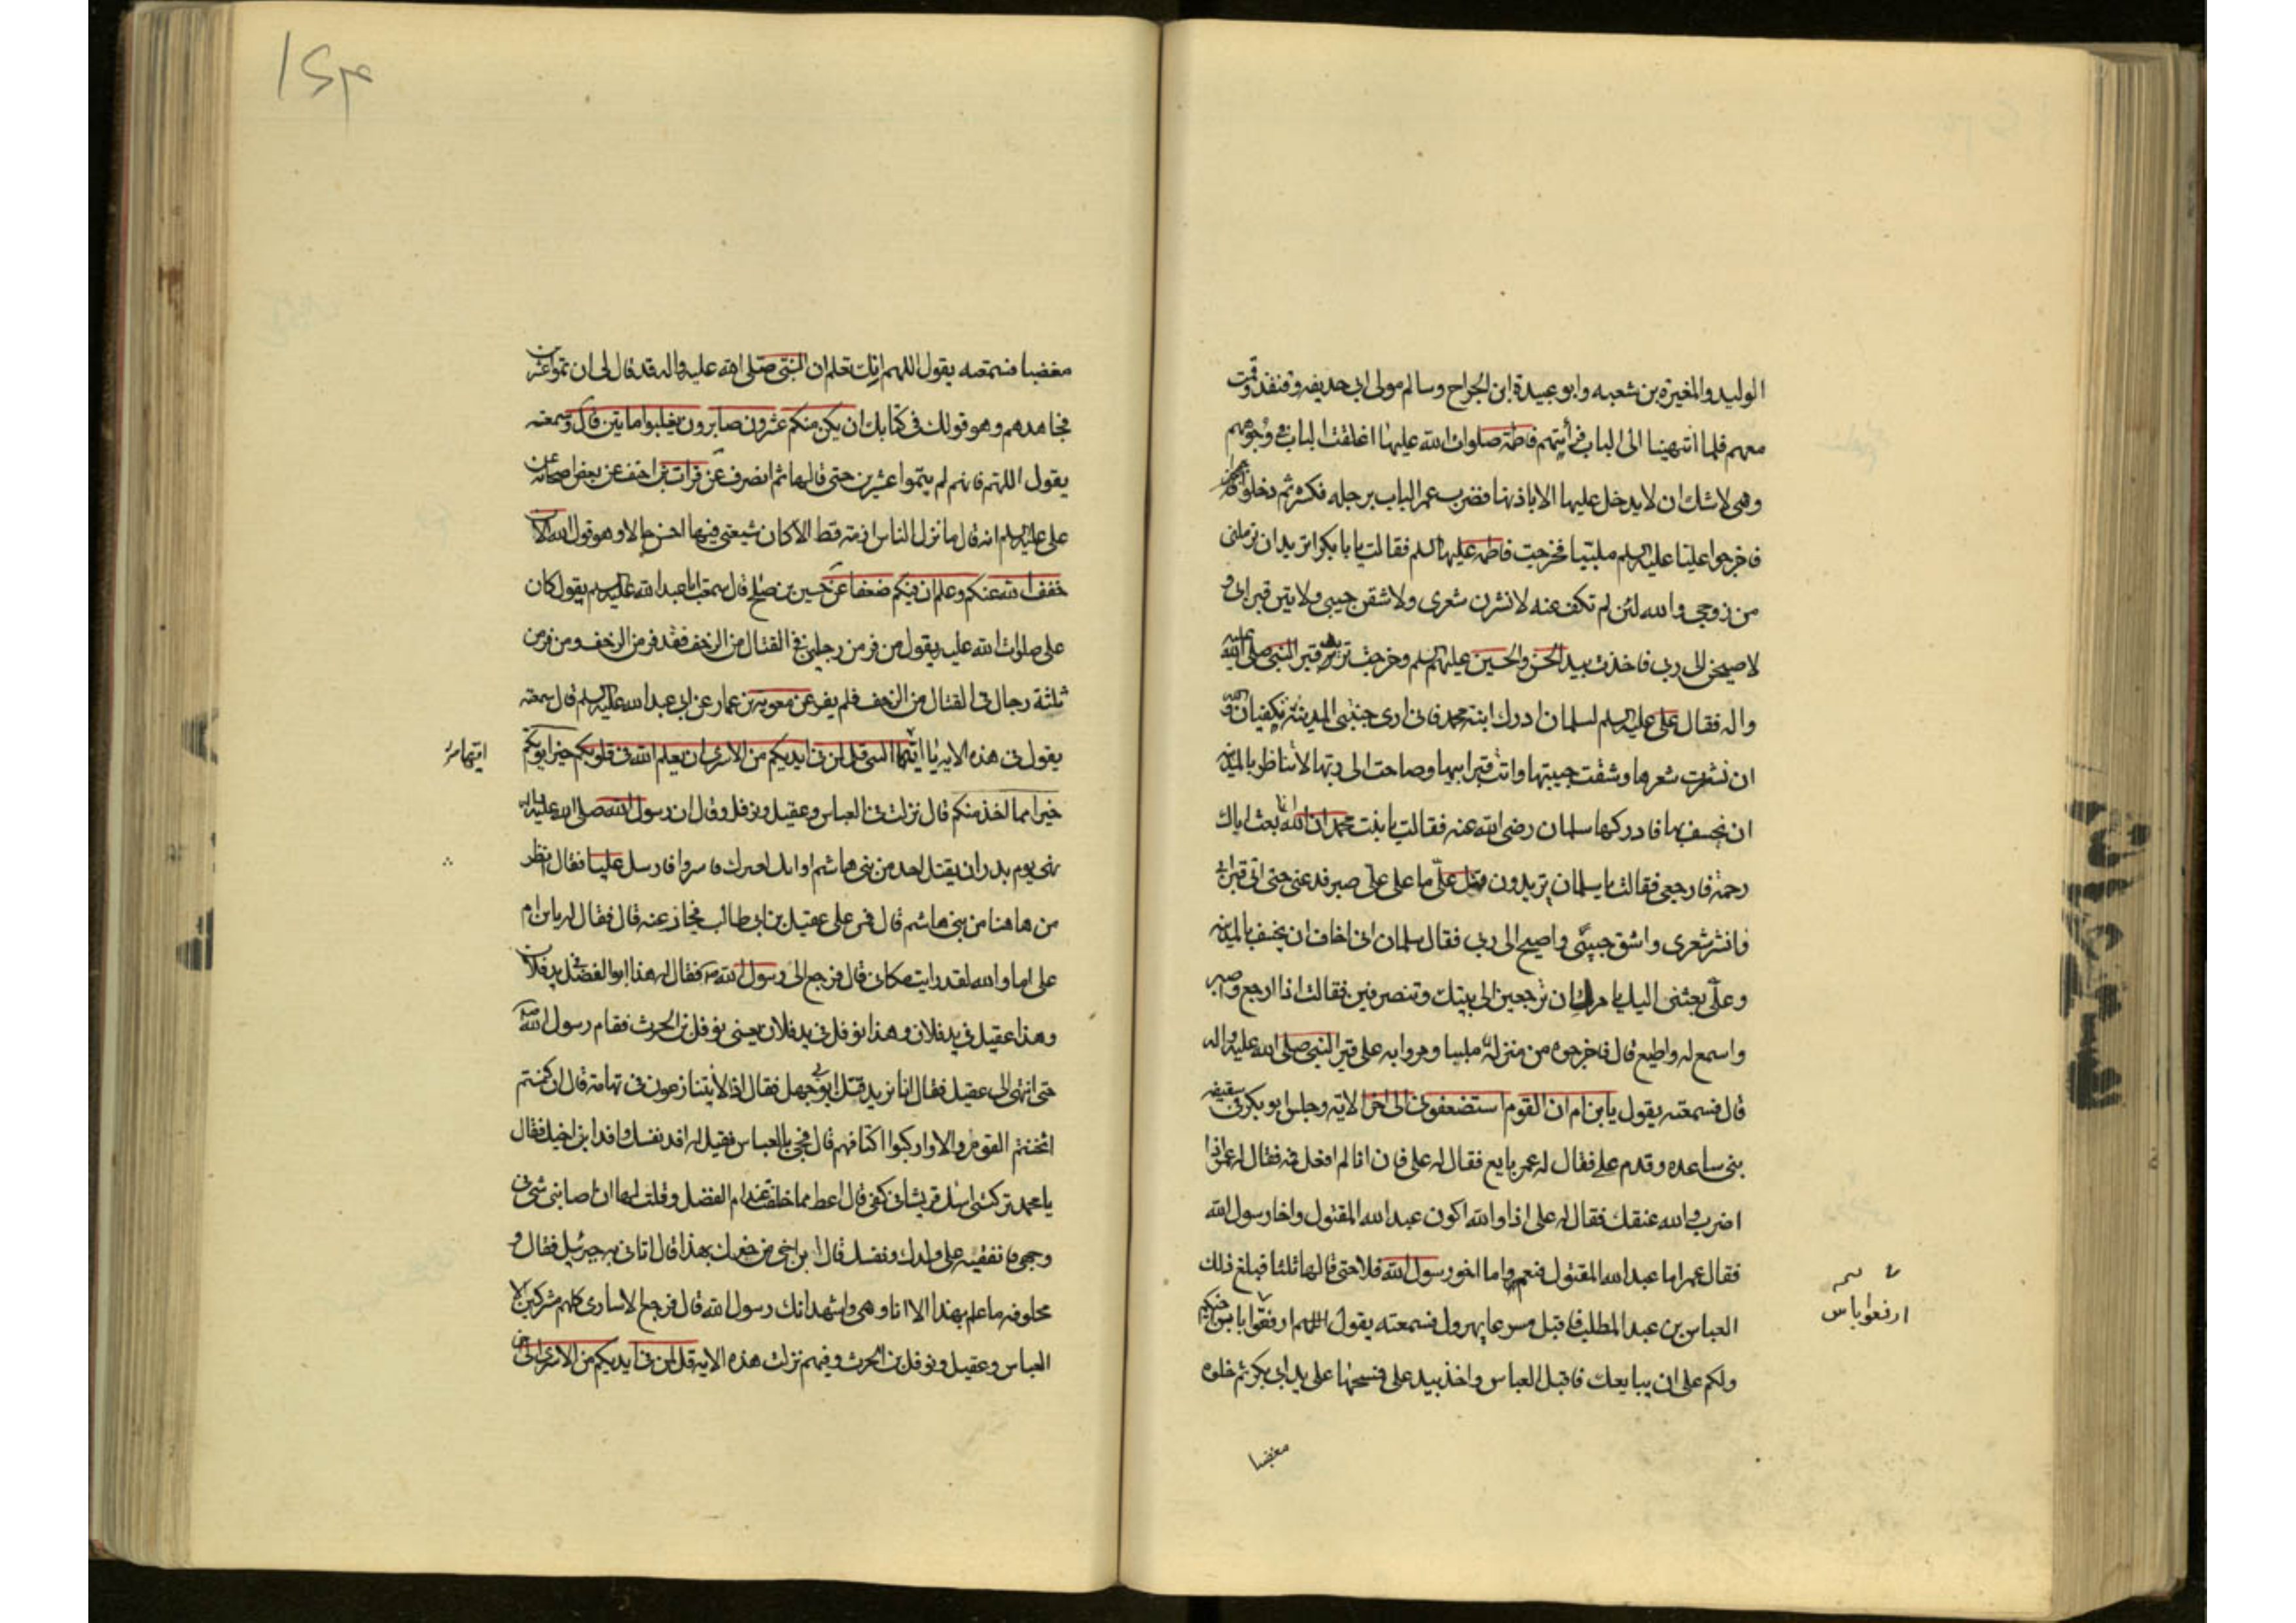 الوليد والمغيرة بن شعبه وابو عبيدة ابن الجراح وسالم مولى ابى حذيفه وقنفذ وقمت
معهم فلما انتهينا الى الباب فرأيتهم فاطمة صلوات الله عليها اغلقت الباب فى وجوههم
وهى لا تشك ان لا يدخل عليها الا باذنها فضرب عمر الباب برجله فكسره ثم دخلوا
فاخرجوا عليا عليه السلم ملبيا فخرجت فاطمه عليها السلم فقالت يا بابكر اتريد ان ترملنى
من زوجى والله لئن لم تكف عنه لانشرن شعرى ولاشقن جيبى ولاتين قبر ابى و
لاصيحن الى ربى فاخذت بيد الحسن والحسين عليهم السلم وخرجت تريد قبر النبى صلى الله عليه
واله فقال على عليه السلم لسلمان ادرك ابنة محمد فانى ارى جنبتى المدينة تكفيان والله
ان نشرت شعرها وشقت جيبها واتت قبر ابيها وصاحت الى ربها لا يناظر بالمدينه
ان يخسف بها فادركها سلمان رضى الله عنه فقالت يا بنت محمد ان الله انما بعث اباك
رحمة فارجعى فقالت يا سلمان يريدون قتل على ما على على صبر فدعنى حتى اتى قبر ابى
فانشر شعرى واشق جيبى واصيح الى ربى فقال سلمان انى اخاف ان يخسف بالمدينه
وعلى بعثنى اليك يامرك ان ترجعين الى بيتك وتنصرفين فقالت اذا ارجع واصبر
واسمع له واطيع قال فاخرجوه من منزله ملبيا ومروا به على قبر النبى صلى الله عليه واله
قال فسمعته يقول يابن ام ان القوم استضعفونى الى اخر الاية وجلس ابو بكر فى سقيفه
بنى ساعده وقدم على فقال له عمر بايع فقال له على فان انا لم افعل فمه فقال له عمر اذا
اضرب والله عنقك فقال له على اذا والله اكون عبد الله المقتول واخا رسول الله
فقال عمر اما عبد الله المقتول فنعم واما اخو رسول الله فلا حتى قالها ثلثا فبلغ ذلك
العباس بن عبد المطلب فاقبل مسرعا يهرول فسمعته يقول ارفقوا بابن اخى
ولكم على ان يبايعك فاقبل العباس واخذ بيد على فمسحها على يد ابى بكر ثم خلوه
ارفعوا باس
مغضبا
مغضبا فسمعته يقول اللهم انك تعلم ان النبى صلى الله عليه واله قد قال لى ان تموا عشرين
فجاهدهم وهو قولك فى كتابك ان يكن منكم عشرون صابرون يغلبوا مايتين قال وسمعته
يقول اللهم فانهم لم يتموا عشرين حتى قالها ثلثا ثم انصرف عن فرات بن احنف عن بعض اصحابه عن
على عليه السلم انه قال ما نزل بالناس ازمة قط الا كان شيعتى فيها احسن حالا وهو قول الله الان
خفف الله عنكم وعلم ان فيكم ضعفا عن حسين بن صلح قال سمعت ابا عبد الله عليه السلم يقول كان
على صلوات الله عليه يقول من فر من رجلين فى القتال من الزحف فقد فر من الزحف ومن فر من
ثلثة رجال فى القتال من الزحف فلم يفر عن معوية بن عمار عن ابى عبد الله عليه السلم قال سمعته
يقول فى هذه الايه يا ايها النبى قل لمن فى ايديكم من الاسرى ان يعلم الله فى قلوبكم خيرا يوتكم
خيرا مما اخذ منكم قال نزلت فى العباس وعقيل ونوفل وقال ان رسول الله صلى الله عليه واله
نهى يوم بدر ان يقتل احد من بنى هاشم فاسروا فارسل عليا فقال انظر
من هاهنا من بنى هاشم قال فمر على عقيل بن ابى طالب فحاز عنه قال فقال له يابن ام
على اما والله لقد رايت مكانى قال فرجع الى رسول الله ص فقال له هذا ابو الفضل فى يد فلان
وهذا عقيل فى يد فلان وهذا نوفل فى يد فلان يعنى نوفل بن الحرث فقام رسول الله ص
حتى انتهى الى عقيل فقال له يا ابا يزيد قتل ابو جهل فقال اذا لا يتنازعون فى تهامة قال ان كنتم
اثخنتم القوم والا فاركبوا اكتافهم قال فجئ بالعباس فقيل له افد نفسك وافد ابن اخيك فقال
يا محمد تركتنى اسل قريشا فى كفى قال اعط مما خلفت عند ام الفضل وقلت لها ان اصابنى شئ فى
وجهى فانفقيه على ولدك ونفسك قال يا بن اخى من خبرك بهذا قال اتانى به جبرئيل فقال و
محلوفه ما علم بهذا الا انا وهى واشهد انك رسول الله قال فرجع الاسارى كلهم مشركين الا
العباس وعقيل ونوفل بن الحرث وفيهم نزلت هذه الاية قل لمن فى ايديكم من الاسرى الى